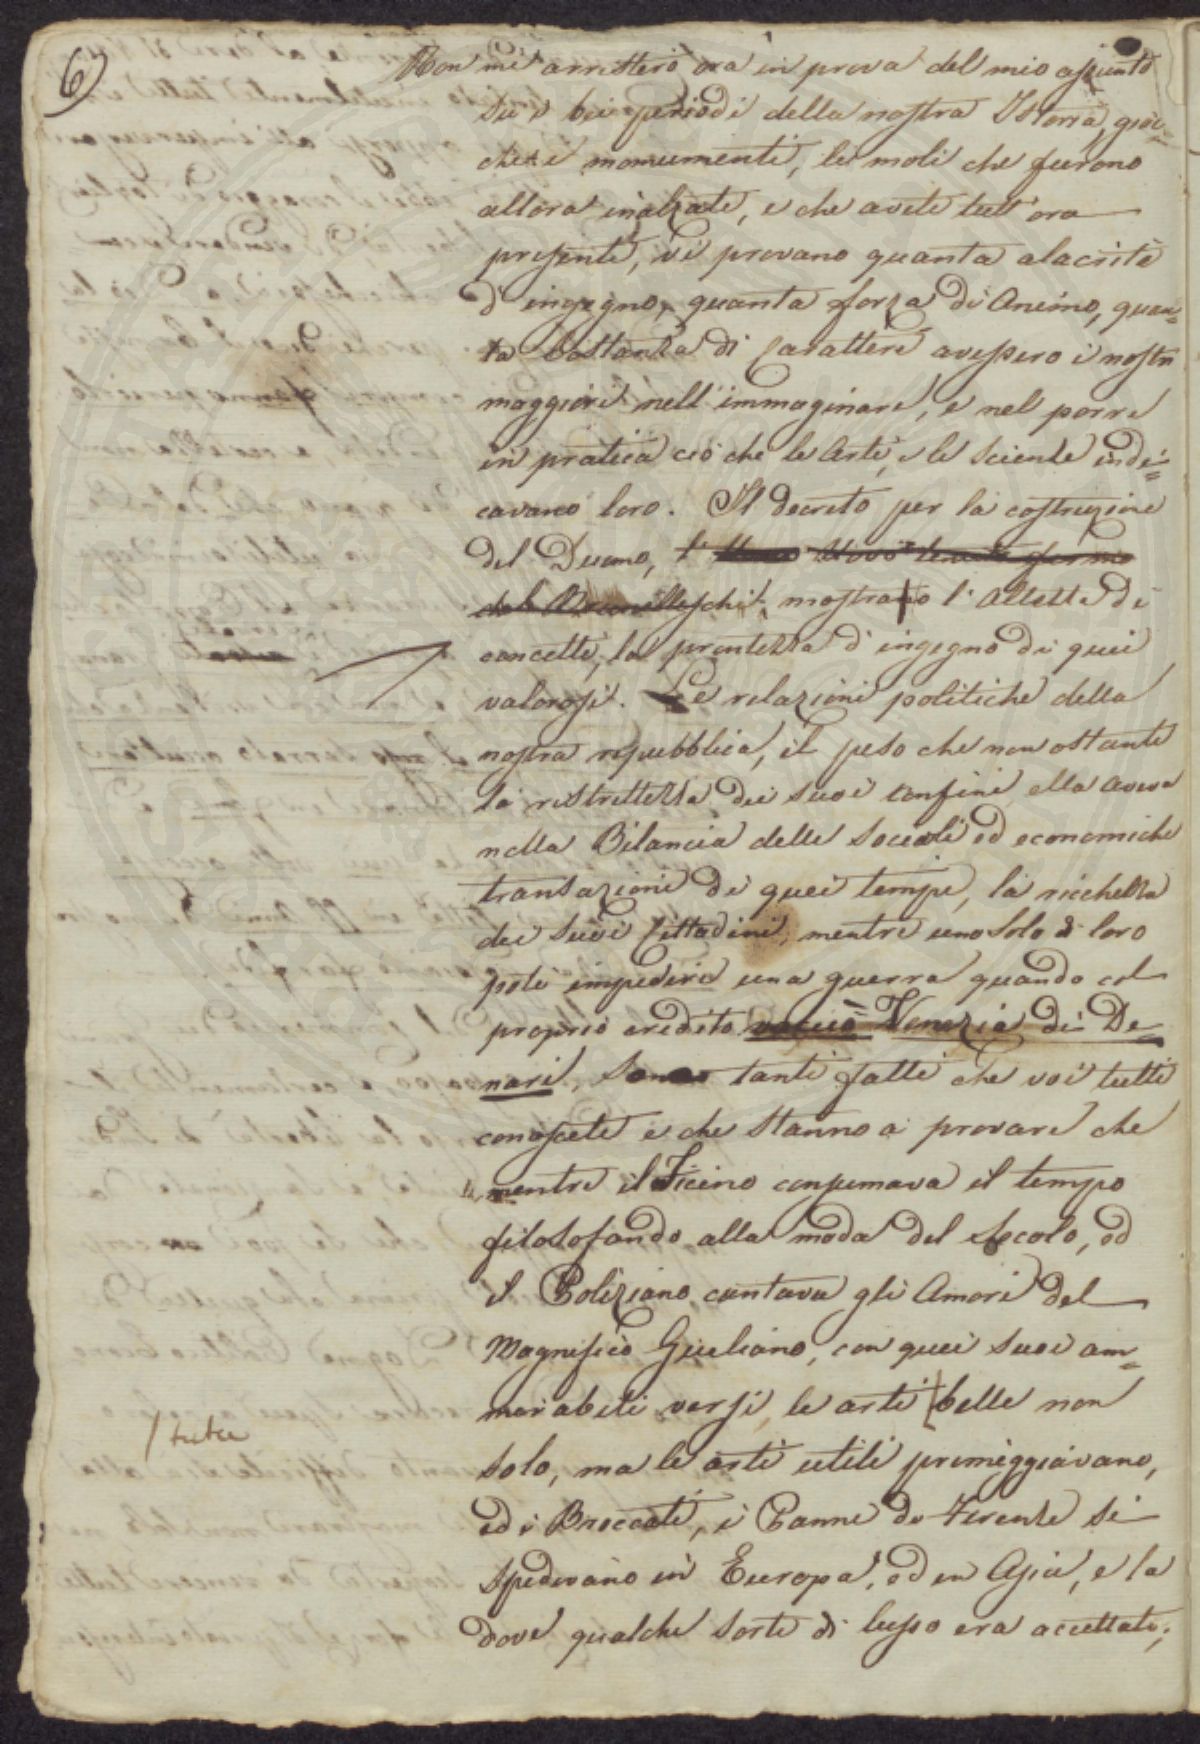 6
Non mi arresterò ora in prova del mio assunto
su i bei periodi della nostra Istoria, gioc-
chè i monumenti, le moli che furono
allora inalzate, e che avete tutt'ora
presenti, vi provano quanta alacrità
d'ingegno, quanta forza di Animo, quan=
ta Costanza di Carattere avessero i nostri
maggiori nell'immaginare, e nel porre
in pratica ciò che le Arti, e le Scienze indi=
cavano loro. Il decreto per la costruzione
del Duomo, l'
del Brunelleschi mostrano l'altezza di
concetti, la prontezza d'ingegno di quei
valorosi. Le relazioni politiche della
nostra repubblica, il peso che non ostante
la ristrettezza dei suoi confini ella aveva
nella Bilancia delle sociali ed economiche
transazioni di quei tempi, la ricchezza
dei suoi Cittadini, mentre uno solo di loro
potè impedire una guerra quando col
proprio credito vuotò Venezia di De=
nari, sono tanti fatti che voi tutti
conoscete e che stanno a provare che
mentre il Ficino consumava il tempo
filosofando alla moda del secolo, ed
il Poliziano cantava gli Amori del
Magnifico Giuliano, con quei suoi am=
mirabili versi, le arti belle non
solo, ma le arti utili primeggiavano,
ed i Broccati, i Panni di Firenze si
spedivano in Europa, ed in Asia, e la
dove qualche sorte di lusso era accettato;